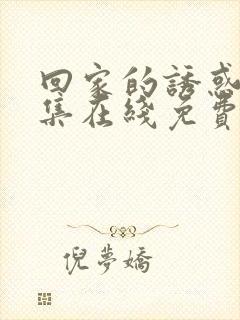 回家的誘惑
集在綫免費
倪夢嬌